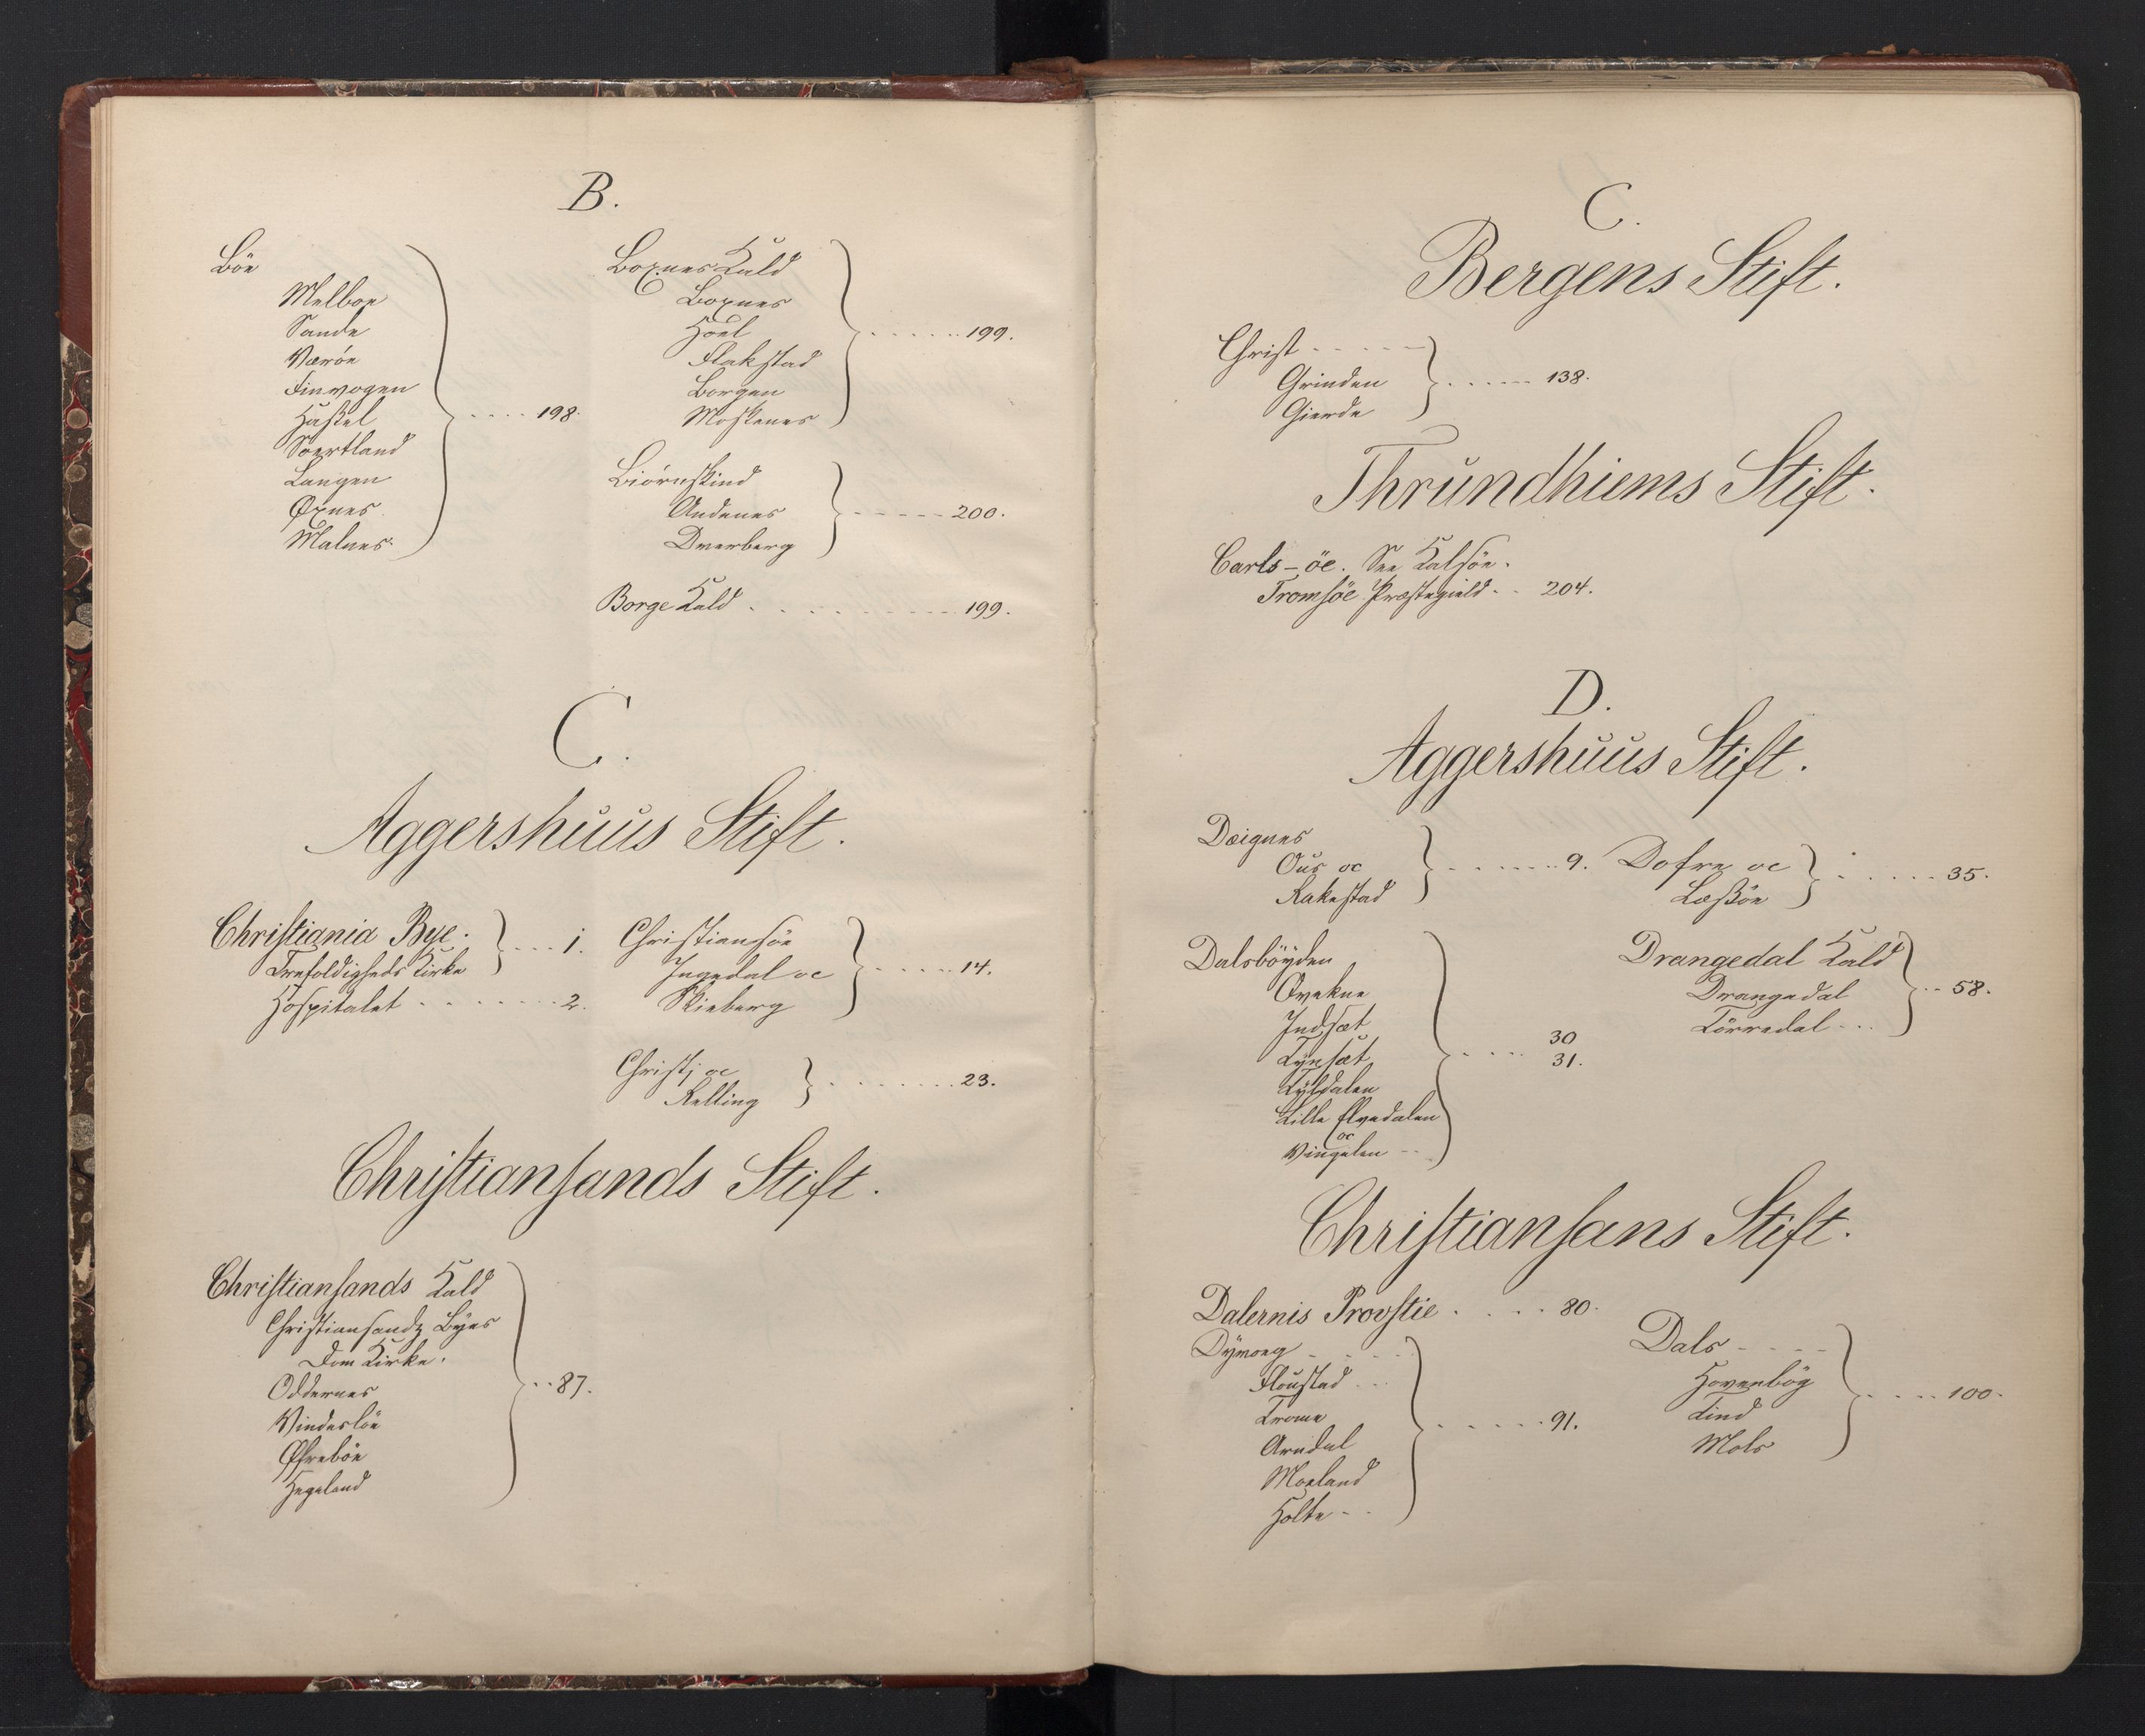 B.
Böe
Melboe
Sande
Væröe
Finvogen
Haßel
Soertland
Langen
Øxnes
Malnes
198.
Boxnes Kald
Boxnes
Hoel
Flakstad
Borgen
Moskenes
199.
Biörnskind
Andenes
Dverberg
200.
Borge Kald 199.
C.
Aggershuus Stift.
Christiania Bye.
Trefoldigheds Kirke
1.
Hospitalet 2.
Christiansöe
Ingedal oc
Skieberg
14.
Christj oc
Kelling
23.
Christiansands Stift.
Christiansands Kald
Christiansandz Byes
Dom Kirke.
Oddernes
Vindeslöe
Øfreböe
Hegeland
87.
C.
Bergens Stift.
Christ
Grinden
Gierde
138.
Thrundhiems Stift.
Carls-öe. See Kalsöe.
Tromsöe Præstegield 204.
D.
Aggershuus Stift.
Dæignes
Ous oc
Rakestad
9.
Dofre oc
Læßöe
35.
Dalsböyden
Qvekne
Indsæt
Tynsæt
Tyldalen
Lille Elvedalen
oc
Vingelen
30
31.
Drangedal Kald
Drangedal
Törredal
58.
Christiansans Stift.
Dalernis Provstie 80.
Dyvog
Floustad
Trome
Arndal
Moeland
Holte
91.
Dals
Hovenbög
Lind
Mols
100.